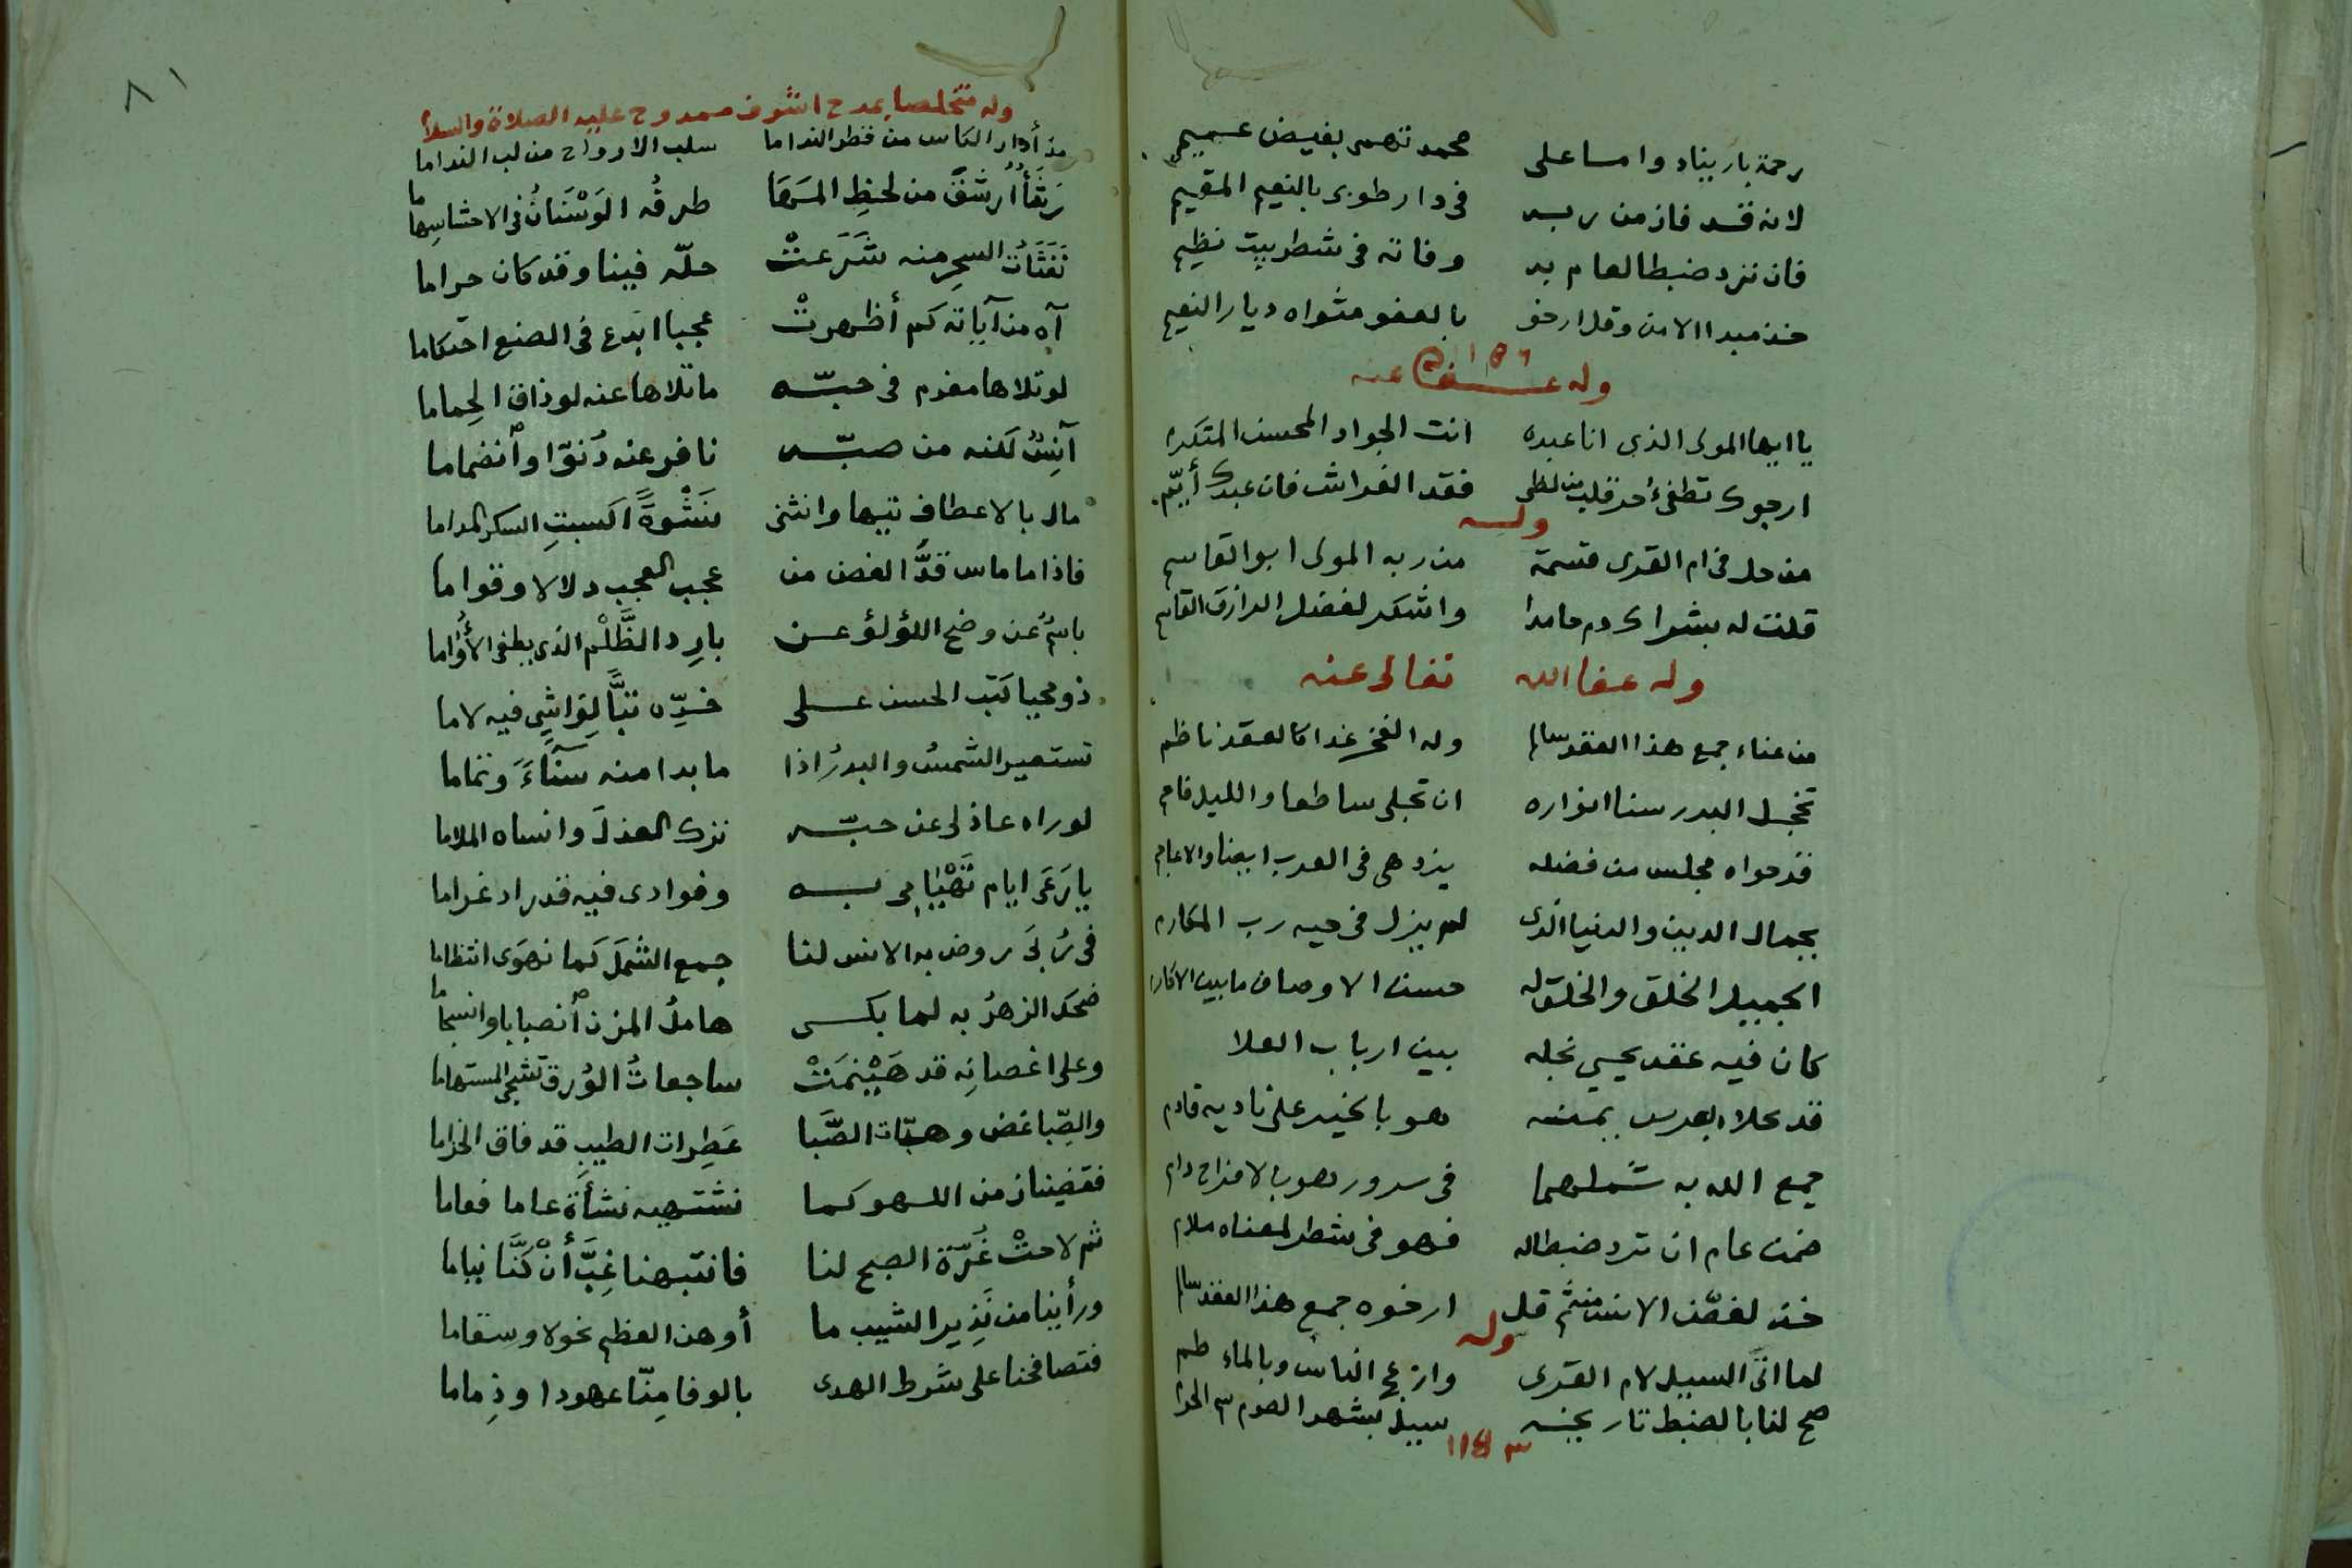 رحمة باريناد وامسا على محمد تهمى بفيض عميم
لانه قد فاز من ربه فى دار طوبى بالنعيم المقيم
فان ترد ضبطا لعام به وفاته فى شطر بيت نظيم
خذ مبدا الامن وقل ارخو بالعفو مثواه ديار النعيم
١١٥٦
وله عفا عنه
يا ايها المولى الذى انا عبده انت الجواد المحسن المتكرم
ارجوك تطفئ حر قلب من لظى فقد الفراش فان عبدك أيّم
وله
من حل فى ام القرى قسمة من ربه المولى ابو القاسم
قلت له بشراك دم حامدا واشكر لفضل الرازق القاسم
وله عفا الله تعالى عنه
من عناء جمع هذا العقد سالم وله الفخر غدا كالعقد ناظم
تخجل البدر سنا انواره ان تجلى ساطعا والليل فاحم
قد حواه مجلس من فضله يزدهى فى العرب ايضا والاعاجم
بجمال الدين والدنيا الذى لم يزل فى حيه رب المكارم
الجميل الخلق والخلق له حسن الاوصاف ما بين الاكارم
كان فيه عقد يحيى نجله بين ارباب العلا
قد علاه بعرس يمنه هو بالخير على ناديه قادم
جمع الله به شملهما فى سرور وهو بالافراح دام
ضمن عام ان ترد ضبطا له فهو فى شطر لمعناه ملام
خذ لغصن الانس منه ثم قل ارخوه جمع هذا العقد سالم
وله
لما اتى السيل لام القرى وازعج الناس وبالماء طم
صح لنا بالضبط تاريخه سيل بشهر الصوم عم الحرم
٨١
وله متخلصا بمدح اشرف ممدوح عليه الصلاة والسلام
مذ أدار الكاس من قطر النداما سلب الارواح من لب النداما
رشأ أرشق من لحظ المها طرفه الوَسْنَانُ فى الاحشا سهاما
نَفَثَاتُ السحرِ منه شَرَعتْ حلّه فينا وقد كان حراما
آه من آياته كم أظهرتْ عجبا ابدع فى الصنع احتكاما
لو تلاها مغرم فى حبّه ما تلاها عنه لو ذاق الحِماما
آنِسٌ لكنه من صبّه نافر عنه دُنوّا وٱنضماما
مال بالاعطاف تيها وانثنى نَشْوةً اكسبتِ السكر المداما
فاذا ما ماس قدُّ الغصن من عجب العجب دلالا وقواما
باسمٌ عن وضح اللؤلؤ عن بارِد الظَّلْم الذى يطفى الأُوَاما
ذو محيا كتب الحسن على خدِّه تبًّا لِوَاشِى فيه لاما
تستعير الشمسُ والبدرُ اذا ما بدا منه سَنَاءً وتماما
لو راه عاذلى عن حبّه ترك العذلَ وانساه الملاما
يا رَعَى ايام تَهْيَامِى به وفوادى فيه قد زاد غراما
فى رُبَى روض به الانس لنا جمع الشملَ كما نهوَى انتظاما
ضحك الزهرُ به لما بكى هاملُ المزن ٱنصبابا وانسجاما
وعلى اغصانِه قد هَيْنمَتْ ساجعاتُ الوُرق تشجى المستهاما
والصِّبا غض وهبّات الصَّبا عَطِرات الطيبِ قد فاق الخزاما
فقضينا زمن اللهو كما نشتهيه نشأة عاما فعاما
ثم لاحتْ غُرّة الصبح لنا فانتبهنا غِبَّ أنْ كنَّا نياما
ورأينا من نَذِير الشيب ما أوهن العظم نحولا وسقاما
فتصافحنا على شرط الهدى بالوفا مِنّا عهودا وذِماما